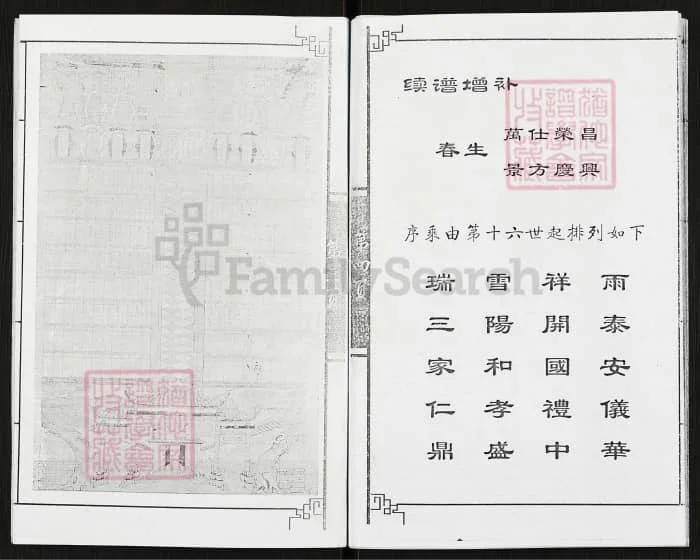 续谱增补
春生
萬仕榮昌
景方慶興
序乘由第十六世起排列如下
瑞雪祥雨
三陽開泰
家和國安
仁孝禮儀
鼎盛中華
FamilySearch